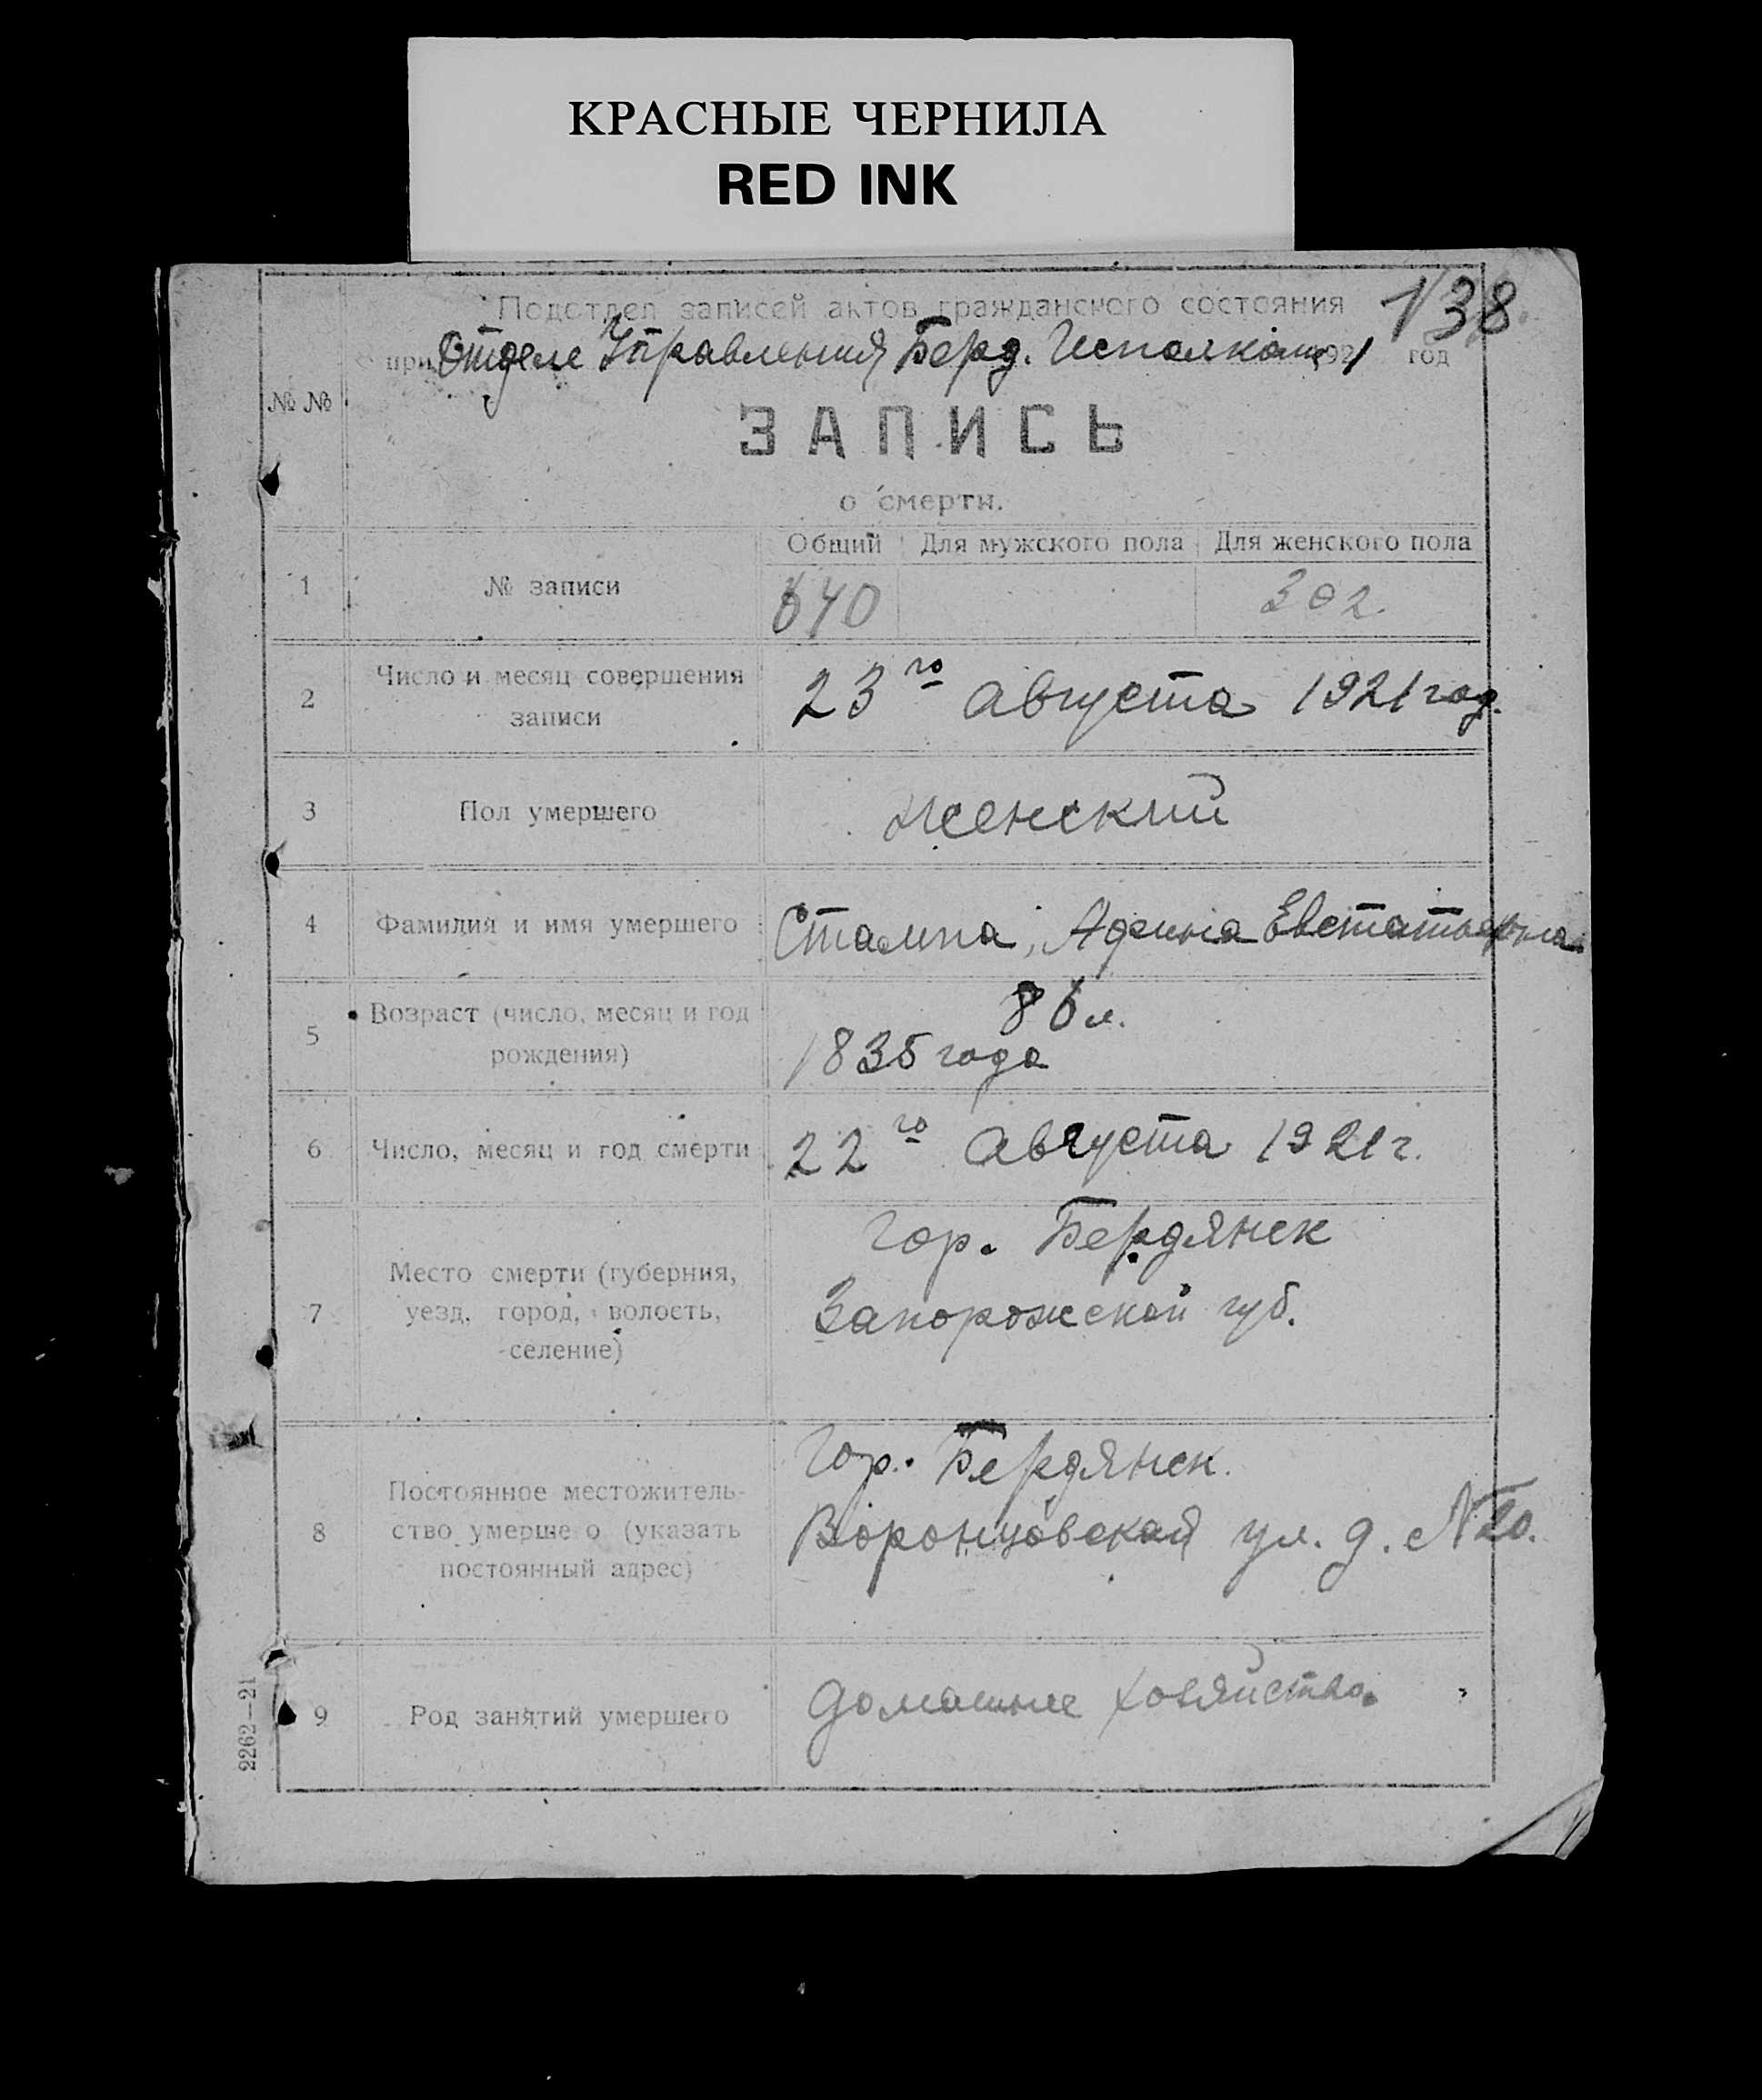 КРАСНЫЕ ЧЕРНИЛА
RED INK
138
Подотдел записей актов гражданского состояния
при Отделе Управления Берд. Исполкома 1921 год
№ №
ЗАПИСЬ
о смерти.
Общий Для мужского пола Для женского пола
1 № записи 640 302.
2 Число и месяц совершения
записи
23го августа 1921 год.
3 Пол умершего женский
4 Фамилия и имя умершего Стампа, Афина Евстатьевна
5 Возраст (число, месяц и год
рождения)
86 л.
1835 года
6 Число, месяц и год смерти 22го августа 1921 г.
7 Место смерти (губерния,
уезд, город, волость,
селение)
Гор. Бердянск
Запорожской губ.
8 Постоянное местожитель-
ство умерше о (указать
постоянный адрес)
Гор. Бердянск.
Воронцовская ул. д. №20.
9 Род занятий умершего домашнее хозяйство.
2262—21